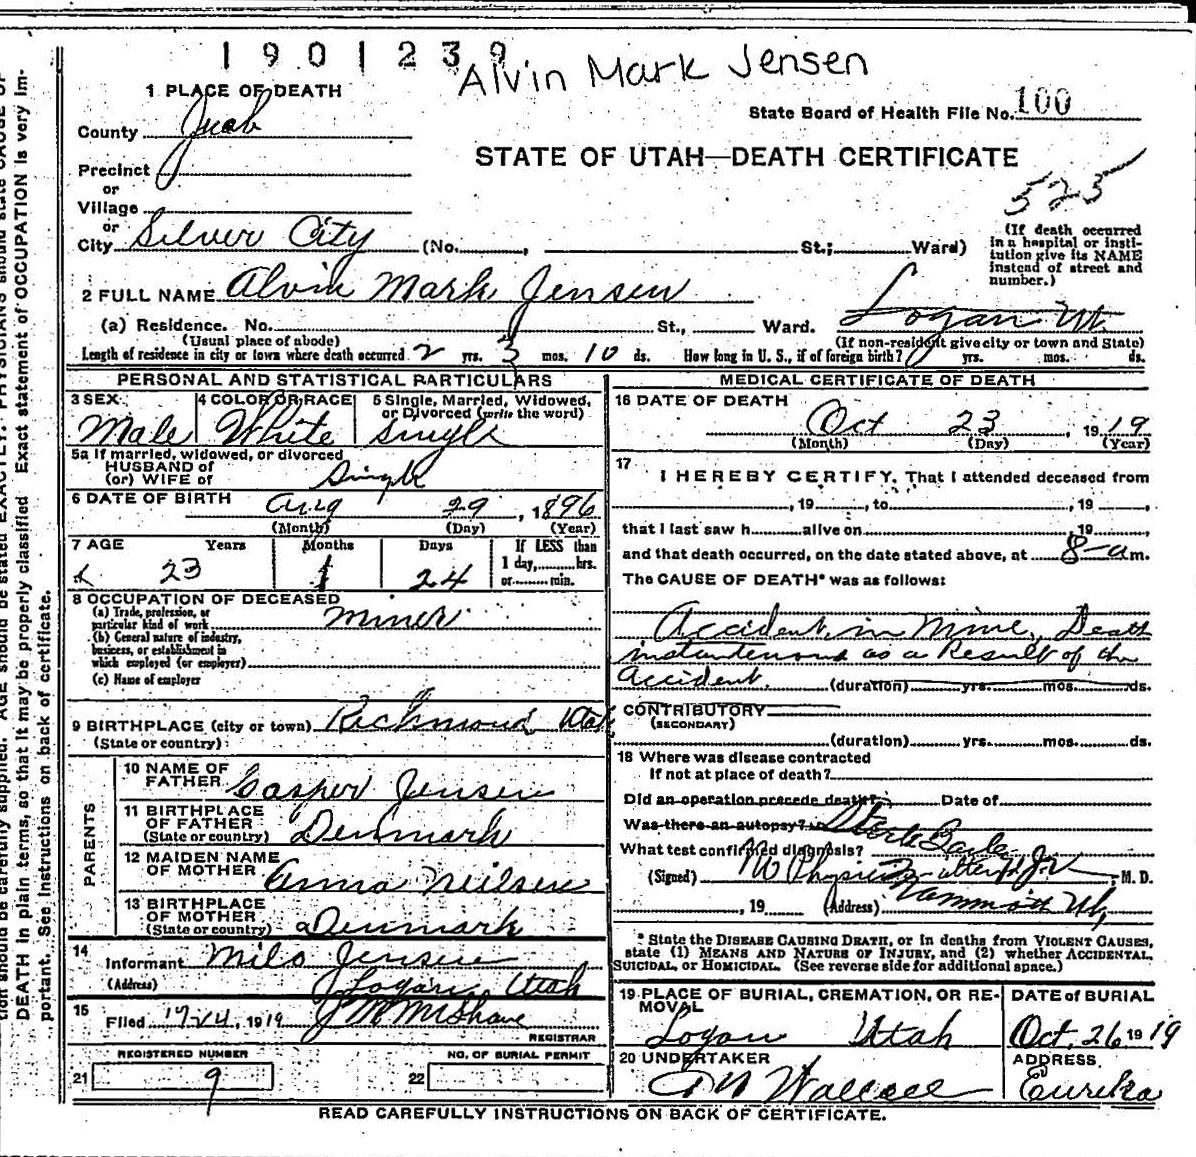 1901239
Alvin Mark Jensen
1 PLACE OF DEATH
State Board of Health File No. 100
County Juab
STATE OF UTAH—DEATH CERTIFICATE
Precinct
or
525
Village
or
City Silver City (No. , St.; Ward)
(If death occurred
in a hospital or insti-
tution give its NAME
instead of street and
number.)
2 FULL NAME Alvin Mark Jensen
(a) Residence. No. St., Ward. Logan Ut.
(Usual place of abode) (If non-resident give city or town and State)
Length of residence in city or town where death occurred 2 yrs. 3 mos. 10 ds. How long in U. S., if of foreign birth? yrs. mos. ds.
PERSONAL AND STATISTICAL PARTICULARS
3 SEX 4 COLOR OR RACE 5 Single, Married, Widowed,
or Divorced (write the word)
Male White Single
5a If married, widowed, or divorced
HUSBAND of
(or) WIFE of Single
6 DATE OF BIRTH Aug 29, 1896
(Month) (Day) (Year)
7 AGE Years Months Days If LESS than
1 day, hrs.
or min.
23 1 24
8 OCCUPATION OF DECEASED
(a) Trade, profession, or
particular kind of work Miner
(b) General nature of industry,
business, or establishment in
which employed (or employer)
(c) Name of employer
9 BIRTHPLACE (city or town) Richmond Utah
(State or country)
PARENTS
10 NAME OF
FATHER Casper Jensen
11 BIRTHPLACE
OF FATHER
(State or country) Denmark
12 MAIDEN NAME
OF MOTHER Emma Neilsen
13 BIRTHPLACE
OF MOTHER
(State or country) Denmark
14
Informant Milo Jensen
(Address) Logan, Utah
15
Filed , 1919
REGISTRAR
REGISTERED NUMBER NO. OF BURIAL PERMIT
21 9 22
MEDICAL CERTIFICATE OF DEATH
16 DATE OF DEATH
Oct 23, 1919
(Month) (Day) (Year)
17
I HEREBY CERTIFY, That I attended deceased from
, 19 , to , 19 ,
that I last saw h alive on 19
and that death occurred, on the date stated above, at 8-a m.
The CAUSE OF DEATH* was as follows:
Accident in Mine, Death
instantenous as a Result of the
Accident. (duration) yrs. mos. ds.
CONTRIBUTORY
(SECONDARY)
(duration) yrs. mos. ds.
18 Where was disease contracted
If not at place of death?
Did an operation precede death? Date of
Was there an autopsy?
What test confirmed diagnosis?
(Signed) No Physician , M. D.
, 19 (Address) Mammoth Ut,
* State the DISEASE CAUSING DEATH, or in deaths from VIOLENT CAUSES,
state (1) MEANS AND NATURE OF INJURY, and (2) whether ACCIDENTAL,
SUICIDAL, or HOMICIDAL. (See reverse side for additional space.)
19 PLACE OF BURIAL, CREMATION, OR RE-
MOVAL
DATE of BURIAL
Logan Utah Oct. 26 1919
20 UNDERTAKER ADDRESS
Wallace Eureka
READ CAREFULLY INSTRUCTIONS ON BACK OF CERTIFICATE.
DEATH in plain terms, so that it may be properly classified Exact statement of OCCUPATION is very im-
portant. See Instructions on back of certificate.